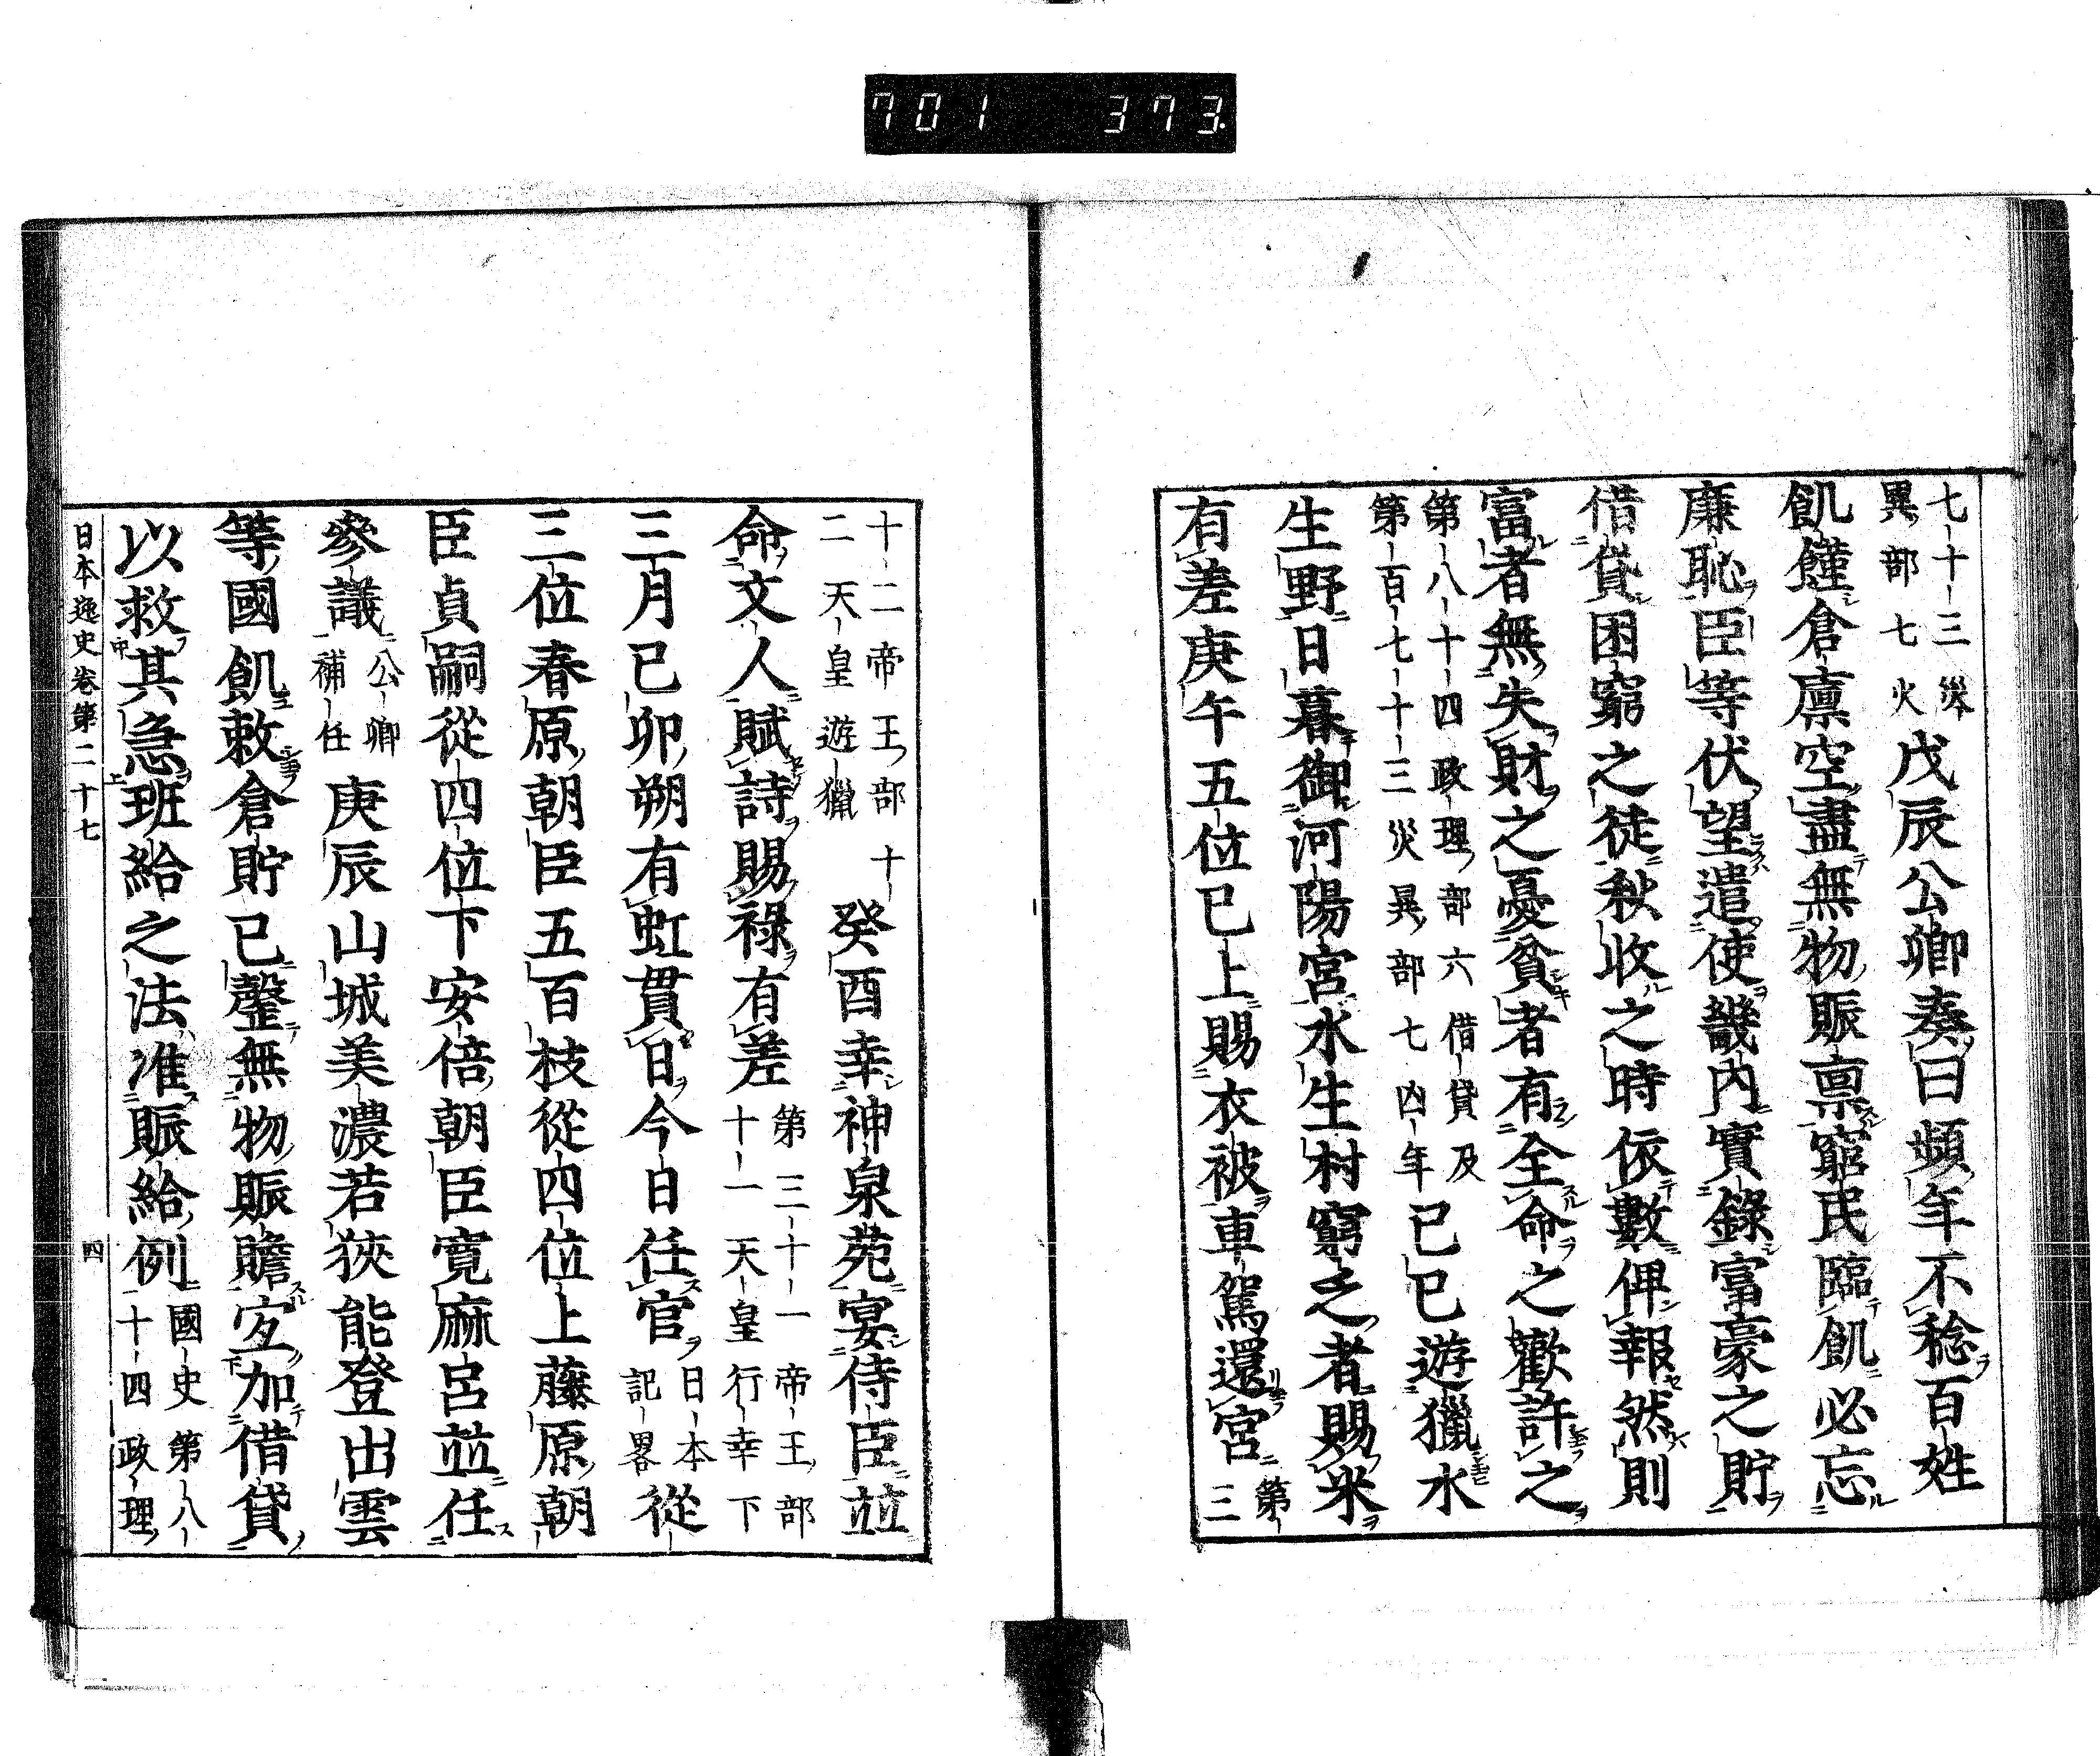 701 373.
七十三 災
異部七 火
戊辰公卿奏曰頻年不稔百姓
飢饉倉廩空盡無物賑禀窮民臨飢必忘
廉恥臣等伏望遣使畿内實錄富豪之貯
借貸困窮之徒秋收之時依數俾報然則
富者無失財之憂貧者有全命之歡許之
第八十四政理部六借貸及
第百七十三災異部七凶年
己巳遊獵水
生野日暮御河陽宮水生村窮乏者賜米
有差庚午五位已上賜衣被車駕還宮
第
三
十二帝王部十
二天皇遊獵
癸酉幸神泉苑宴侍臣並
命文人賦詩賜祿有差
第三十一帝王部
十一天皇行幸下
三月己卯朔有虹貫日今日任官
日本
記畧
從
三位春原朝臣五百枝從四位上藤原朝
臣貞嗣從四位下安倍朝臣寛麻呂並任
參議
公卿
補任
庚辰山城美濃若狹能登出雲
等國飢敕倉貯已罄無物賑贍宜加借貸
以救其急班給之法准賑給例
國史第八
十四政理
日本逸史卷第二十七 四